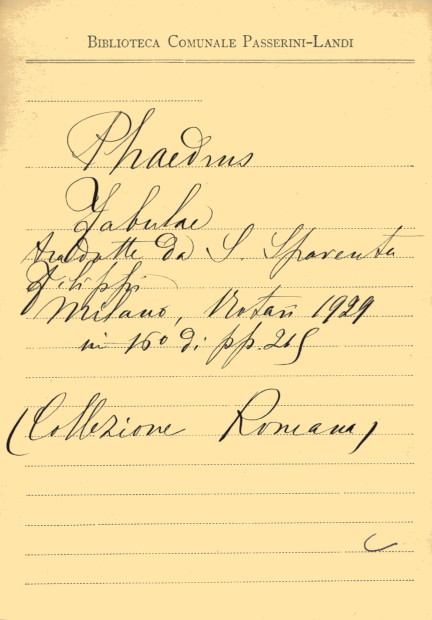 BIBLIOTECA COMUNALE PASSERINI-LANDI
Phaedrus
Fabulae
tradotte da S. Spaventa
Filippi
Milano, Notari 1929
in 16º di pp. 265
(Collezione Romana)